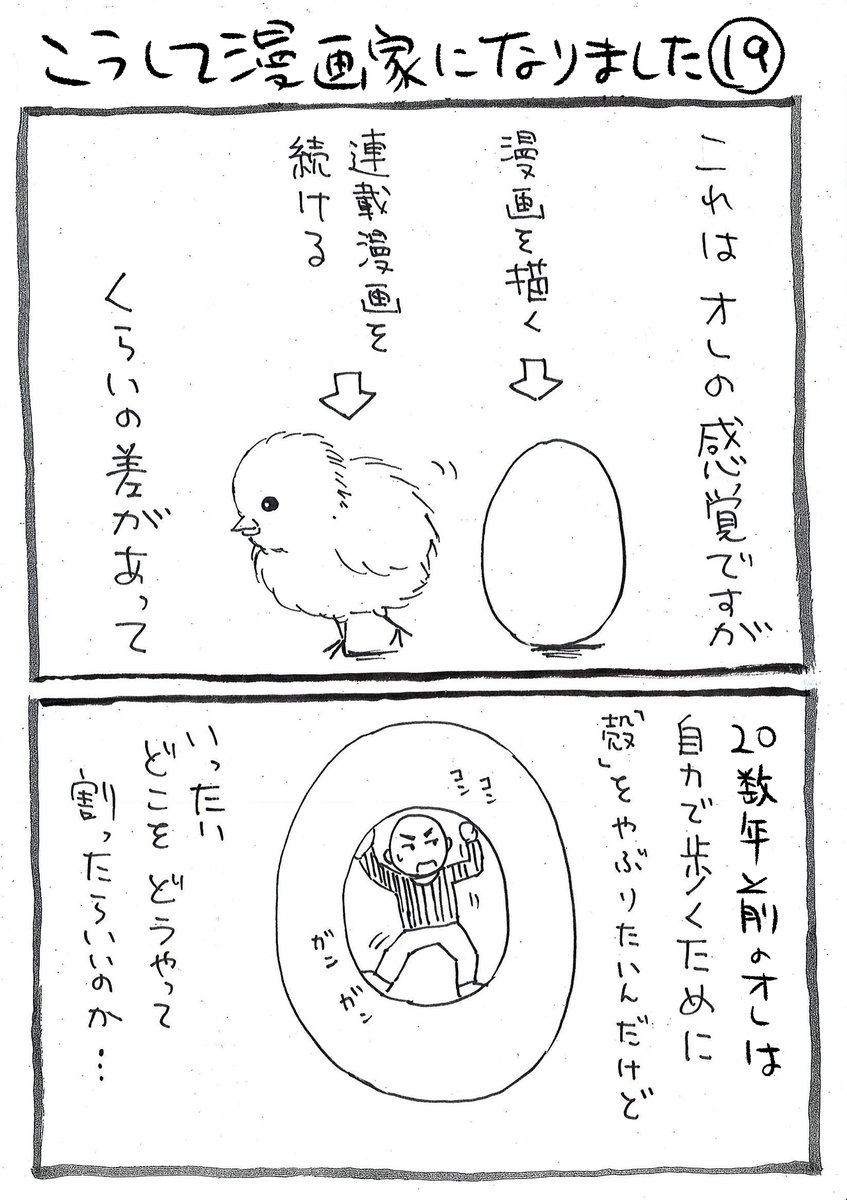 こうして漫画家になりました⑲
これはオレの感覚ですが
漫画を描く
連載漫画を
続ける
くらいの差があって
20数年前のオレは
自力で歩くために
「殻」をやぶりたいんだけど
コン
コン
ガン
ガン
いったい
どこをどうやって
割ったらいいのか…